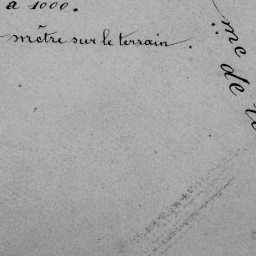 à 1000.
mètre sur le terrain.
me
de